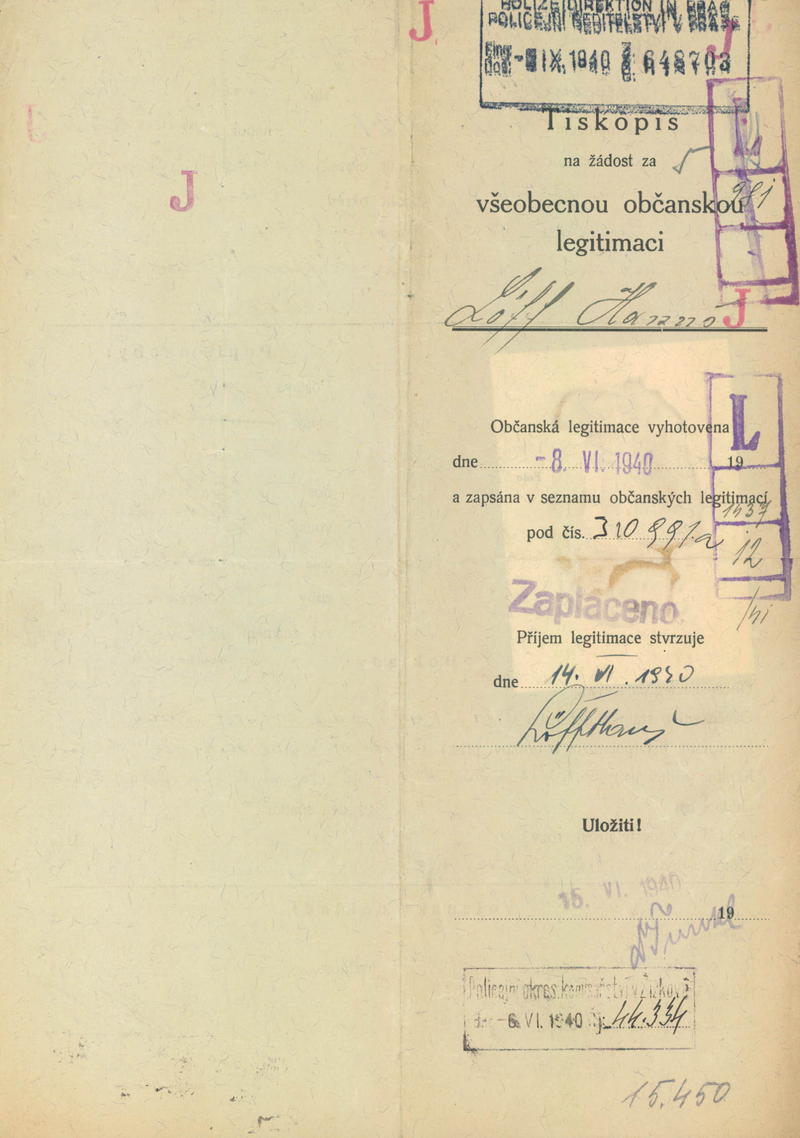 J
J
J
POLIZEIDIREKTION IN PRAG
POLICEJNÍ ŘEDITELSTVÍ V PRAZE
IX. 1940 648703
Tiskopis
na žádost za
všeobecnou občanskou
legitimaci
981
Löff Hanuš
J
Občanská legitimace vyhotovena
L
dne -8. VI. 1940 19
a zapsána v seznamu občanských legitimací
1937
pod čís. 310991a
12
Zaplaceno
/VI
Příjem legitimace stvrzuje
dne 14. VI. 1940
Löff Hanuš
Uložiti!
15. VI. 1940
19
Policejní okres. komisařství v Žižkově
-6. VI. 1940 čj. 44.334
15.450